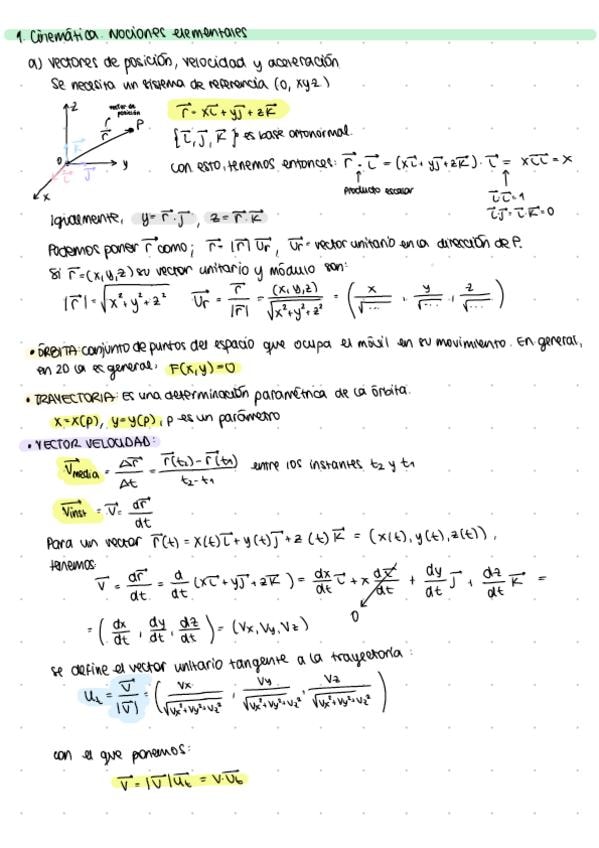 1. Cinemática. Nociones elementales
a) Vectores de posición, velocidad y aceleración
Se necesita un sistema de referencia (0, xyz)
z
vector de posición
r⃗
P
0
k⃗
i⃗
j⃗
y
x
r⃗ = xi⃗ + yj⃗ + zk⃗
{i⃗, j⃗, k⃗} es base ortonormal.
con esto, tenemos entonces: r⃗ · i⃗ = (xi⃗ + yj⃗ + zk⃗) · i⃗ = x i⃗ i⃗ = x
↑ Producto escalar
↑ i⃗ i⃗ = 1
i⃗ j⃗ = i⃗ k⃗ = 0
Igualmente, y = r⃗ · j⃗, z = r⃗ · k⃗
Podemos poner r⃗ como; r⃗ = |r⃗| u⃗r, u⃗r = vector unitario en la dirección de P.
Si r⃗ = (x, y, z) su vector unitario y módulo son:
|r⃗| = √x² + y² + z² u⃗r = r⃗/|r⃗| = (x, y, z)/√x² + y² + z² = (x/√..., y/√..., z/√...)
• ÓRBITA: conjunto de puntos del espacio que ocupa el móvil en su movimiento. En general,
en 2D la es general, F(x, y) = 0
• TRAYECTORIA: Es una determinación paramétrica de la órbita.
x = x(p), y = y(p), p es un parámetro
• VECTOR VELOCIDAD:
V⃗media = Δr⃗/Δt = r⃗(t₂) - r⃗(t₁)/t₂ - t₁ entre los instantes t₂ y t₁
V⃗inst = V⃗ = dr⃗/dt
Para un vector r⃗(t) = x(t)i⃗ + y(t)j⃗ + z(t)k⃗ = (x(t), y(t), z(t)),
tenemos:
V⃗ = dr⃗/dt = d/dt (xi⃗ + yj⃗ + zk⃗) = dx/dt i⃗ + x di⃗/dt + dy/dt j⃗ + dz/dt k⃗ =
0
= (dx/dt, dy/dt, dz/dt) = (Vx, Vy, Vz)
Se define el vector unitario tangente a la trayectoria:
ut = V⃗/|V⃗| = (Vx/√Vx²+Vy²+Vz², Vy/√Vx²+Vy²+Vz², Vz/√Vx²+Vy²+Vz²)
con el que ponemos:
V⃗ = |V⃗| u⃗t = V · u⃗t